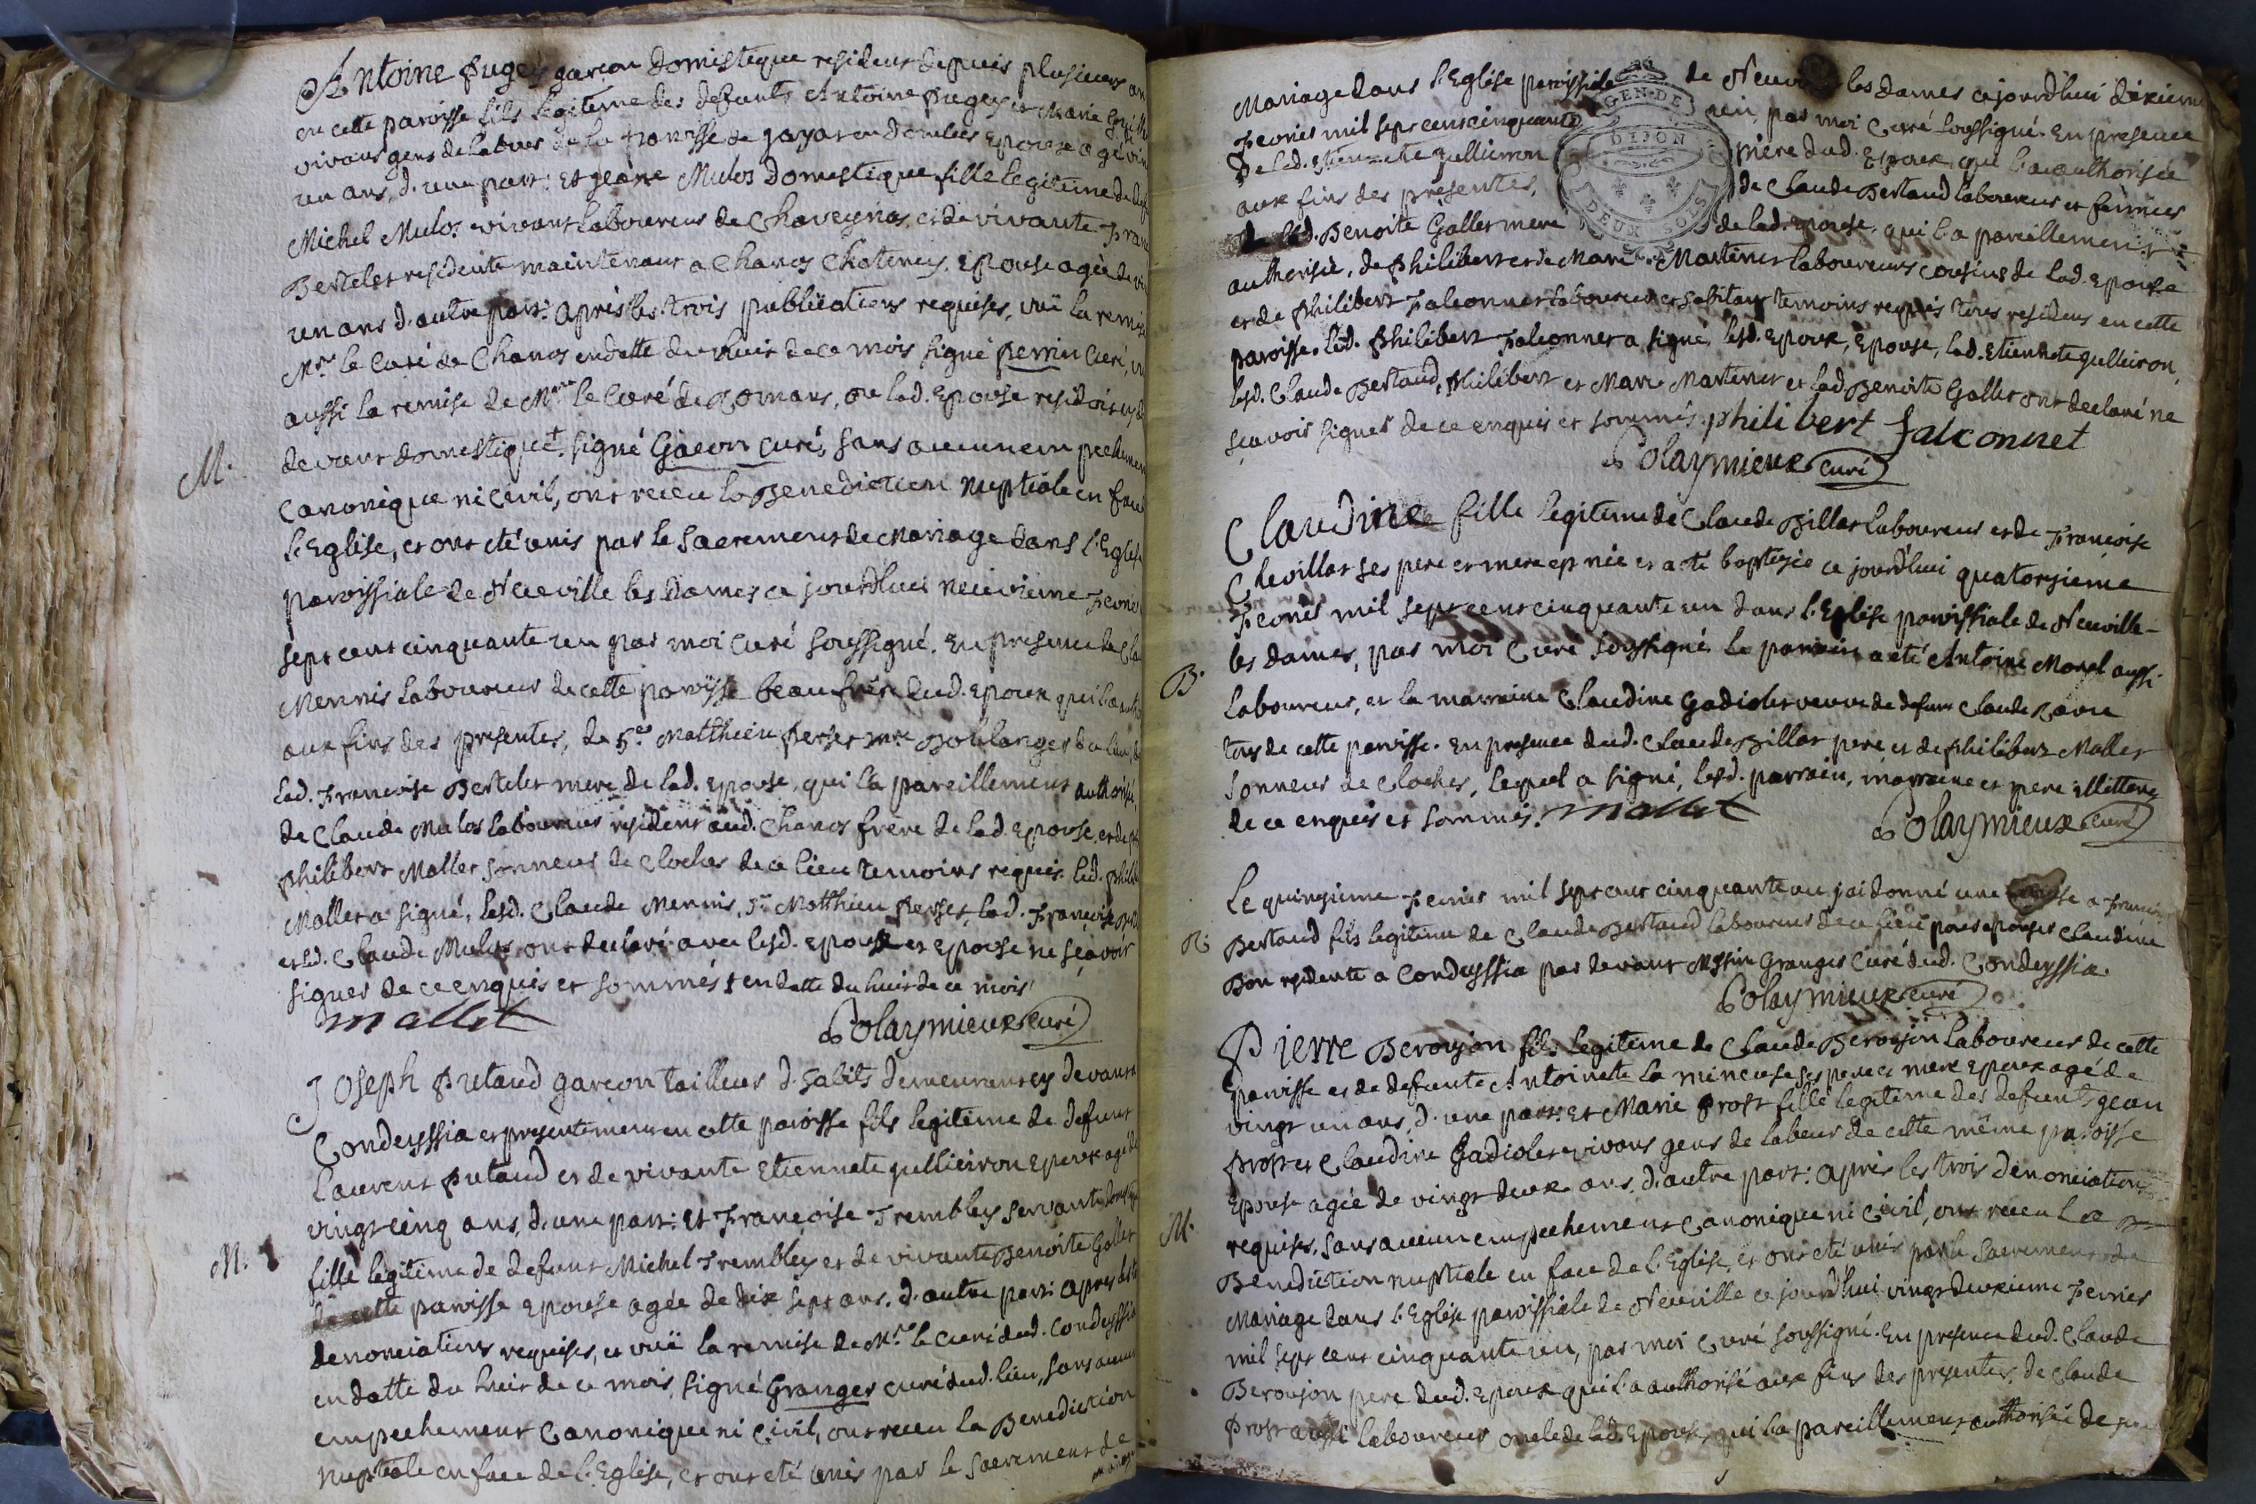 Antoine Pugey garçon domestique resident depuis plusieurs an
en cette paroisse fils legitime des defunts Antoine Pugey et Marie
vivans gens de labeur de la paroisse de jayat en dombes Epoux agé vin
un ans, d'une part: Et jeane Mulos domestique fille legitime de def
Michel Mulos vivant laboureur de Chaveyria, et de vivante Fran
Bertelet residente maintenant a Chanos Chatenay, Epouse agée de vi
un ans d'autre part: après les trois publications requises, vuë la remise
Mre le Curé de Chanos en datte du huit de ce mois signé Perrin Curé, v
aussi la remise de Mre le Curé de Romans, ou lad. Epouse residoit cy
devant domestique + signé Gacon Curé, sans aucun empechemen
Canonique ni Civil, ont receu la Benediction Nuptiale en face
l'Eglise, et ont eté unis par le Sacrement de Mariage dans l'Eglise
paroissiale de Neuville les Dames ce jourd'huy neuvieme Fevri
sept cent cinquante un par moi Curé soussigné. En presence de Cla
Mennis laboureur de cette paroisse beaufrere dud. Epoux qui l'a aut
aux fins des presentes, de Sr Matthieu Perset mre Boulanger de ce lieu, de
lad. Francoise Bertelet mere de lad. Epouse, qui l'a pareillement authorisée,
de Claude Mulos laboureur resident aud. Chanos frere de lad. Epouse, et de
Philibert Mallet sonneur de Cloches de ce lieu temoins requis. led. Phili
Mallet a signé, lesd. Claude Mennis, Sr Matthieu Perset, lad. Françoise
et led. Claude Mulos ont declaré avec lesd. Epoux et Epouse ne sçavoir
signer de ce enquis et sommés + en datte du huit de ce mois
mallet Polaymieux curé
M.
Joseph Putaud garçon tailleur d'habits demeurant cy devant a
Condeyssia et presentement en cette paroisse fils legitime de defunt
Laurent Putaud et de vivante Etiennete gullieiron Epoux agé de
vingt cinq ans, d'une part: Et Françoise Trembley servante
fille legitime de defunt Michel Trembley et de vivante Benoite Gallet
de cette paroisse Epouse agée de dix sept ans, d'autre part: après les
denonciations requises, et vuë la remise de Mr le curé dud. Condeyssia
en datte du huit de ce mois, signé Granger curé dud. lieu, sans aucun
empechement Canonique ni Civil, ont receu la Benediction
Nuptiale en face de l'Eglise, et ont eté unis par le Sacrement de
M.
Mariage dans l'Eglise paroissiale de Neuville les Dames ce jourd'hui dixieme
Fevrier mil sept cent cinquante un, par moi Curé soussigné. En presence
De lad. Etiennete gullieiron mère dud. Epoux, qui l'a authorisé
aux fins des presentes, de Claude Bertaud laboureur et fermier
de lad. Benoite Gallet mere de lad. Epouse, qui l'a pareillement
authorisée, de Philibert et de Marc Martinet laboureurs cousins de lad. Epouse
et de Philibert Falconnet laboureur et habitant temoins requis tous residens en cette
paroisse. led. Philibert Falconnet a signé, lesd. Epoux, Epouse, lad. Etiennete gullieiron,
lesd. Claude Bertaud, Philibert et Marc Martinet et lad. Benoite Gallet ont declaré ne
sçavoir signer de ce enquis et sommés. philibert falconnet
Polaymieux curé
GEN. DE
DIJON
DEUX SOLS
Claudine fille legitime de Claude Billat laboureur et de Françoise
Chevillat ses pere et mere est née et a eté baptisée ce jourd'hui quatorzieme
Fevrier mil sept cent cinquante un dans l'Eglise paroissiale de Neuville
les dames, par moi Curé soussigné. le parrain a eté Antoine Morel aussi
laboureur, et la marraine Claudine Gadiolet veuve de defunt Claude Ravu
tous de cette paroisse. En presence dud. Claude Billat pere et de Philibert Mallet
sonneur de Cloches, lequel a signé, lesd. parrain, marraine et pere illetterés
de ce enquis et sommés. mallet Polaymieux curé
B.
Le quinzieme Fevrier mil sept cent cinquante un j'ai donné une remise a Francois
Bertaud fils legitime de Claude Bertaud laboureur de ce lieu pour epouser Claudine
Bon residente a Condeyssia par devant Messire Granger Curé dud. Condeyssia.
Polaymieux curé
R.
Pierre Beroujon fils legitime de Claude Beroujon laboureur de cette
paroisse et de defunte Antoinete la mineuse ses pere et mere Epoux agé de
vingt un ans, d'une part: Et Marie Prost fille legitime des defunts jean
Prost et Claudine Gadiolet vivans gens de labeur de cette même paroisse
Epouse agée de vingt deux ans, d'autre part: après les trois denonciations
requises, sans aucun empechement Canonique ni Civil, ont receu la
Benediction nuptiale en face de l'Eglise, et ont eté unis par le Sacrement de
Mariage dans l'Eglise paroissiale de Neuville ce jourd'hui vingt deuxieme Fevrier
mil sept cent cinquante un, par moi Curé soussigné. En presence dud. Claude
Beroujon pere dud. Epoux qui l'a authorisé aux fins des presentes, de Claude
Prost aussi laboureur oncle de lad. Epouse, qui l'a pareillement authorisée de
M.